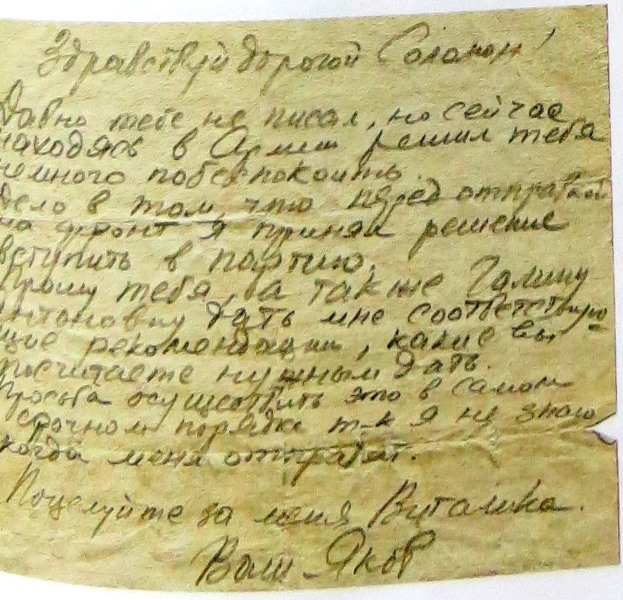 Здравствуй дорогой Соломон!
Давно тебе не писал, но сейчас
находясь в Армии решил тебя
немного побеспокоить.
Дело в том что перед отправкой
на фронт я принял решение
вступить в партию.
Прошу тебя, а также Галину
Антоновну дать мне соответствую-
щие рекомендации, какие вы
посчитаете нужным дать.
Просьба осуществить это в самом
срочном порядке т-к я не знаю
когда меня отправят.
Поцелуйте за меня Виталика.
Ваш Яков